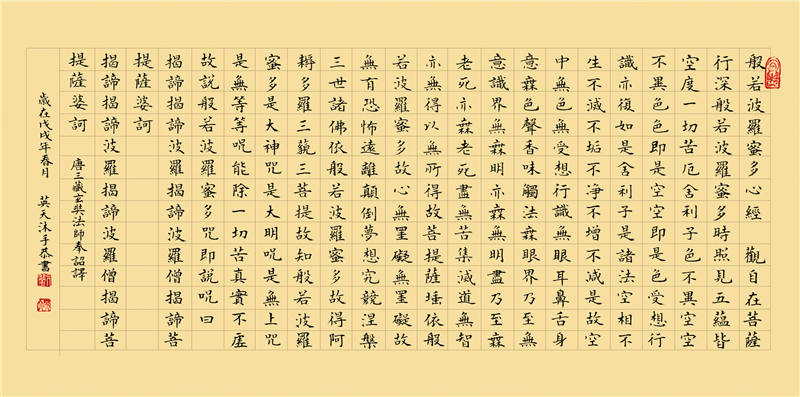 般若波羅蜜多心經 觀自在菩薩
行深般若波羅蜜多時照見五蘊皆
空度一切苦厄舍利子色不異空空
不異色色即是空空即是色受想行
識亦復如是舍利子是諸法空相不
生不滅不垢不淨不增不減是故空
中無色無受想行識無眼耳鼻舌身
意無色聲香味觸法無眼界乃至無
意識界無無明亦無無明盡乃至無
老死亦無老死盡無苦集滅道無智
亦無得以無所得故菩提薩埵依般
若波羅蜜多故心無罣礙無罣礙故
無有恐怖遠離顛倒夢想究竟涅槃
三世諸佛依般若波羅蜜多故得阿
耨多羅三藐三菩提故知般若波羅
蜜多是大神咒是大明咒是無上咒
是無等等咒能除一切苦真實不虛
故說般若波羅蜜多咒即說咒曰
揭諦揭諦波羅揭諦波羅僧揭諦菩
提薩婆訶
揭諦揭諦波羅揭諦波羅僧揭諦菩
提薩婆訶
唐三藏玄奘法師奉詔譯
歲在戊戌年春月 英天沐手恭書